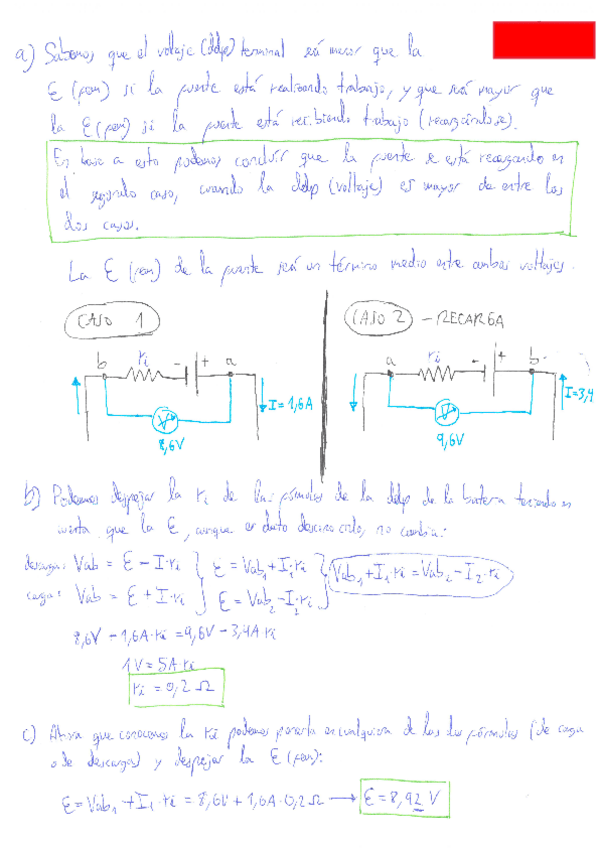 a) Sabemos que el voltaje (ddp) terminal será menor que la
Ɛ (fem) si la fuente está realizando trabajo, y que será mayor que
la Ɛ (fem) si la fuente está recibiendo trabajo (recargándose).
En base a esto podemos concluir que la fuente se está recargando en
el segundo caso, cuando la ddp (voltaje) es mayor de entre los
dos casos.
La Ɛ (fem) de la fuente será un término medio entre ambos voltajes.
CASO 1
CASO 2 - RECARGA
b ri - + a
I = 1,6A
V
8,6V
a ri - + b
I = 3,4
V
9,6V
b) Podemos despejar la ri de las fórmulas de la ddp de la batería teniendo en
cuenta que la Ɛ, aunque es dato desconocido, no cambia:
descarga: Vab = Ɛ - I·ri } Ɛ = Vab₁ + I₁·ri } Vab₁ + I₁·ri = Vab₂ - I₂·ri
carga: Vab = Ɛ + I·ri } Ɛ = Vab₂ - I₂·ri }
8,6V - 1,6A·ri = 9,6V - 3,4A·ri
1V = 5A·ri
ri = 0,2 Ω
c) Ahora que conocemos la ri podemos ponerla en cualquiera de las dos fórmulas (de carga
o de descarga) y despejar la Ɛ (fem):
Ɛ = Vab₁ + I₁·ri = 8,6V + 1,6A·0,2Ω → Ɛ = 8,92 V